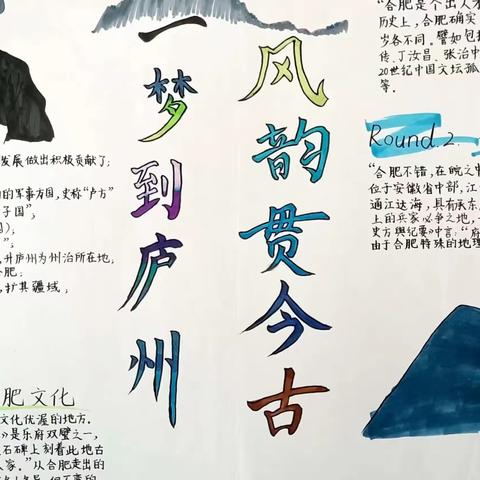 一梦到庐州
风韵贯今古
发展做出积极贡献了;
的军事方国,史称“卢方”
子国”;
国);
”;
,升庐州为州治所在地;
合肥;
,扩其疆域;
肥文化
文化优渥的地方.
》是乐府双璧之一,
石碑上刻着此地古
人家。”从合肥走出的
“合肥是个出人才
历史上,合肥确实
岁各不同。譬如包拯
传、丁汝昌、张治中
20世纪中国文坛孤
等.
Round.2.
“合肥不错,在皖之中
位于安徽省中部,江
通江达海,具有承东
上的兵家必争之地,
史方舆纪要》中言:“府
由于合肥特殊的地理